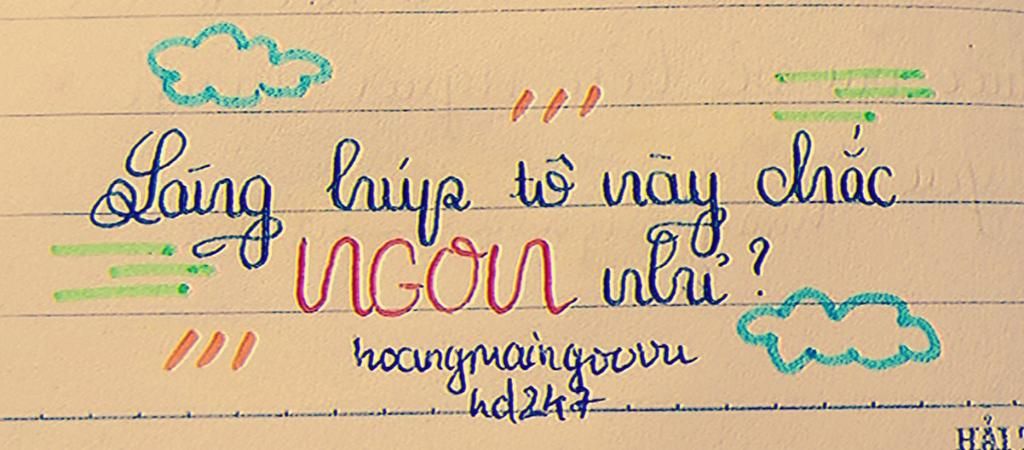 Sáng húp tô này chắc
NGON nhỉ?
hoangmaingocvu
hd247
HẢI